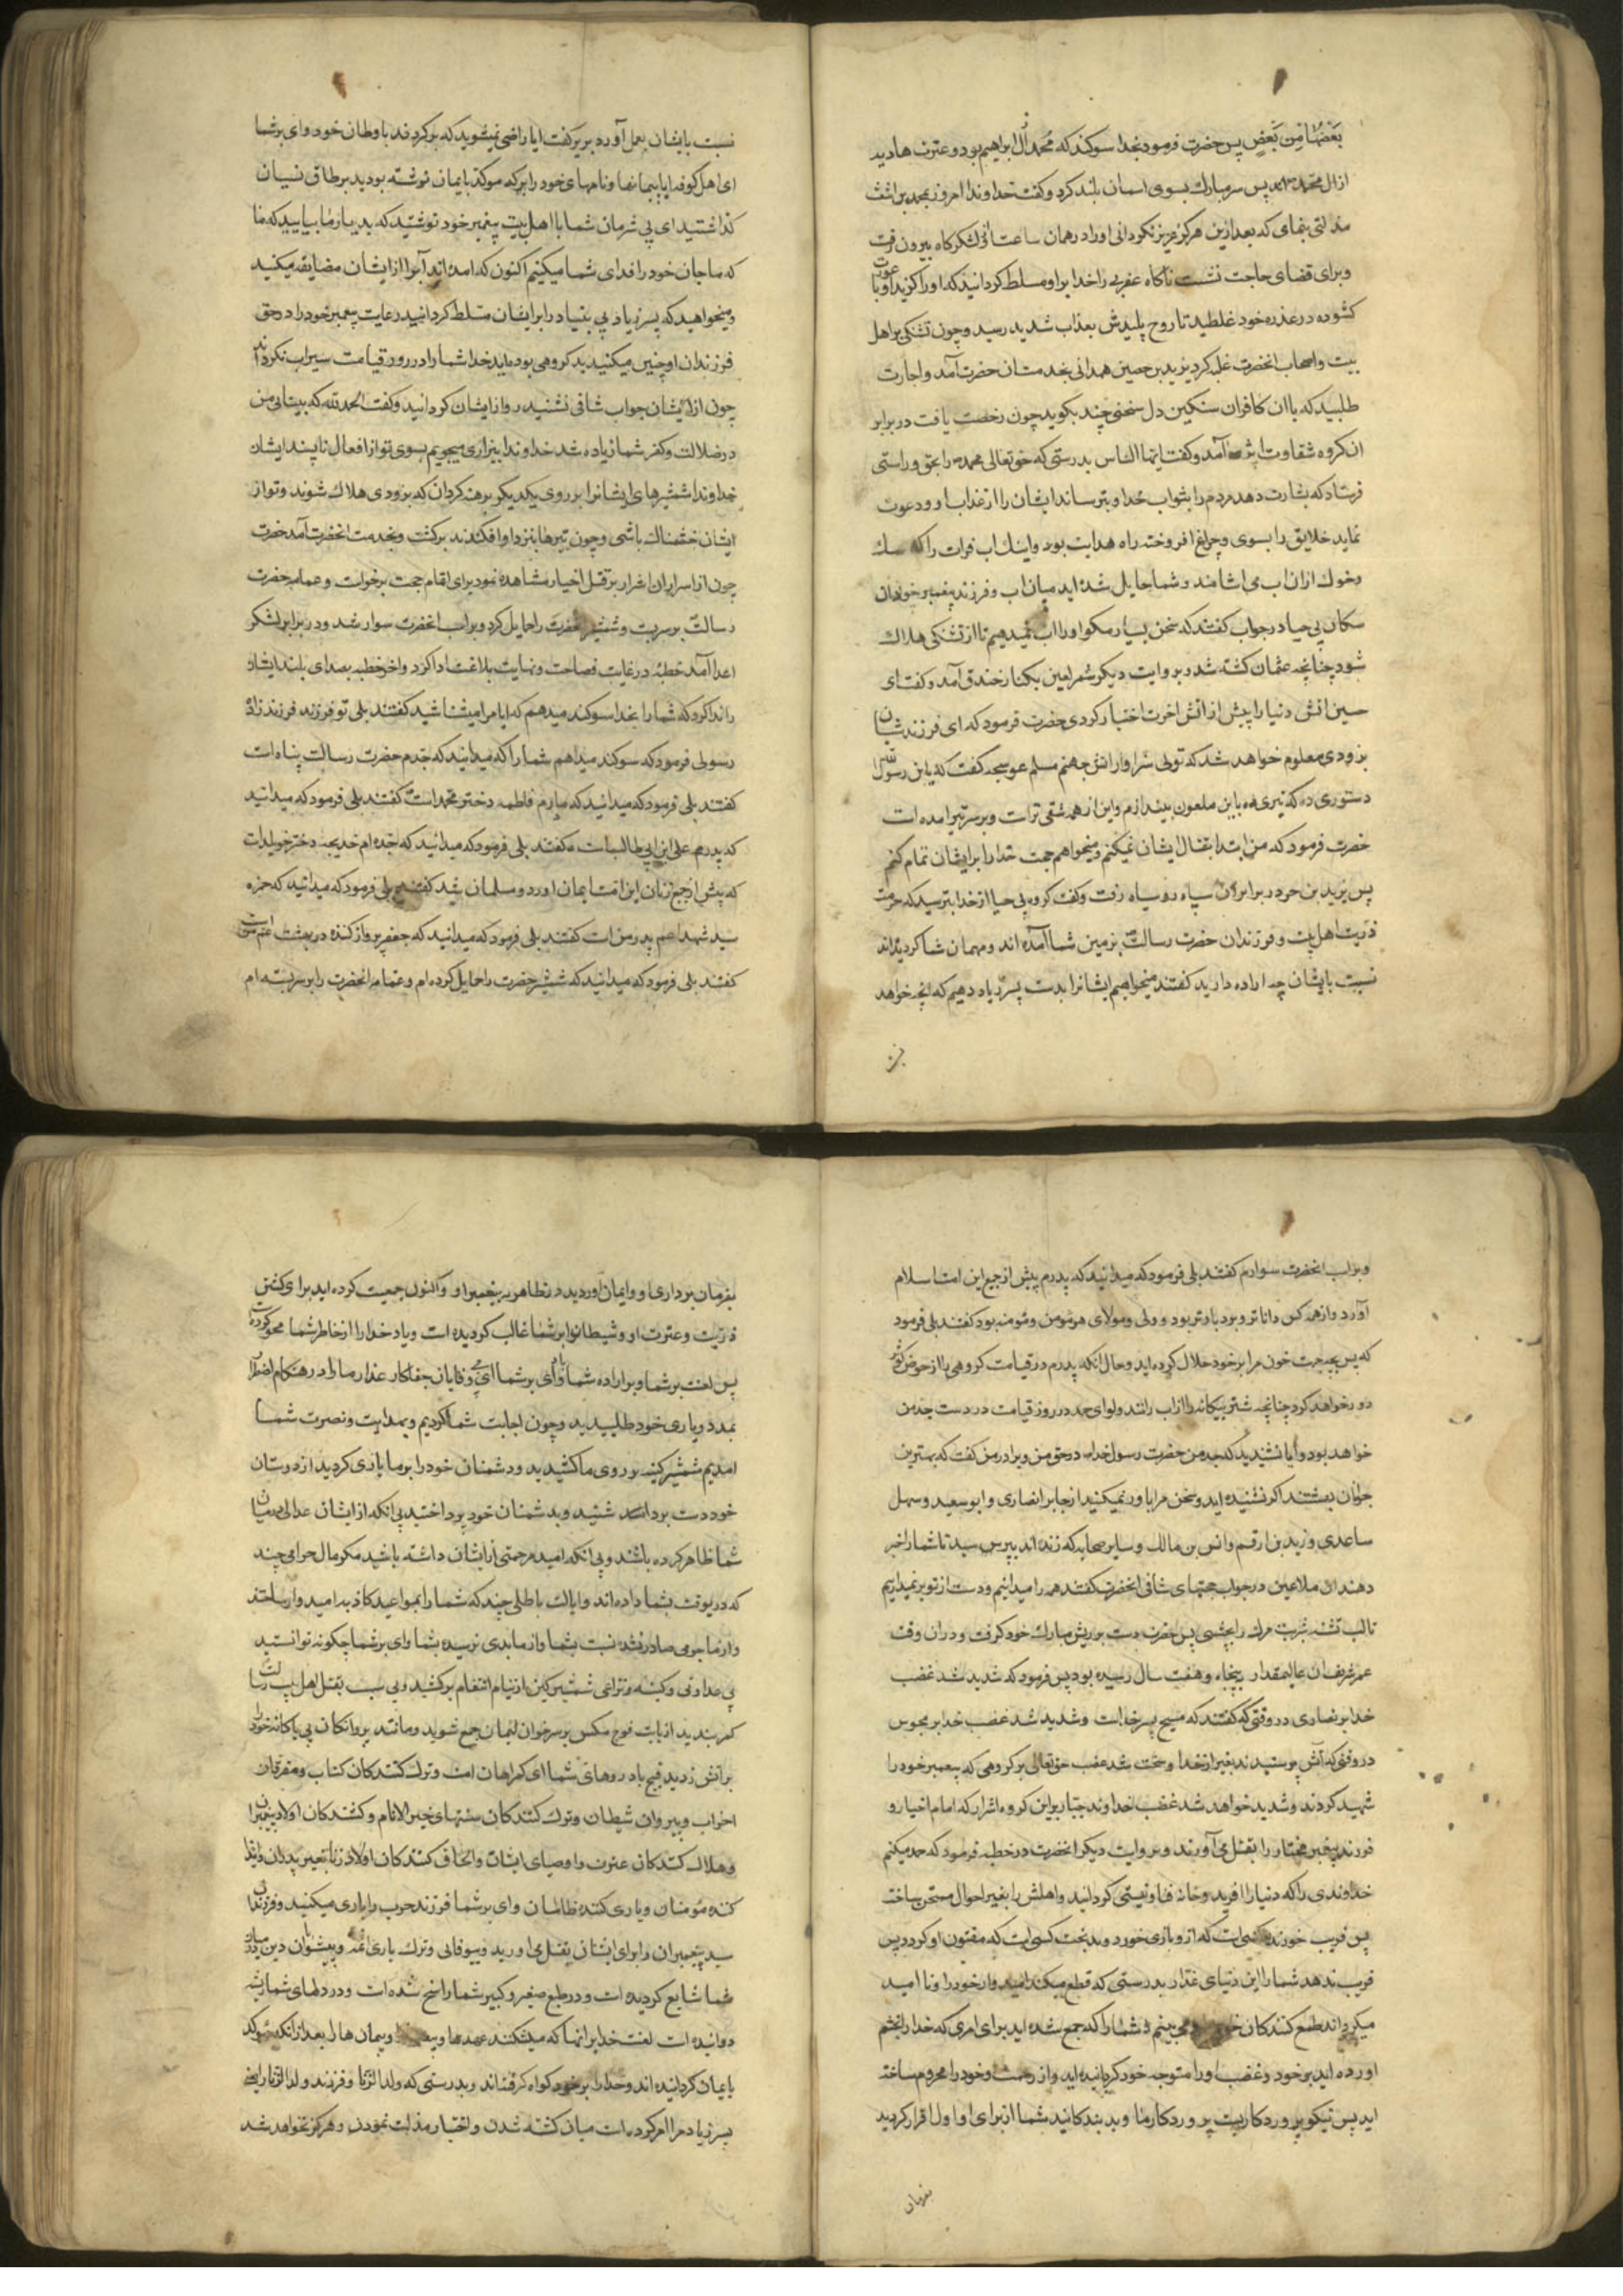 بَعْضُهَا مِن بَعْضٍ پس حضرت فرمود بخدا سوکند که محمد از آل ابراهیم بود و عترت هادیه
از آل محمدند پس سر مبارک بسوی اسمان بلند کرد و کفت خداوندا امروز بمحمد بن اشعث
مذلتی بنمای که بعد ازین هرکز عزیز نکردانی او را در همان ساعت از لشکرکاه بیرون رفت
و برای قضای حاجت نشست ناکاه عقربی را خدا برو مسلط کردانید که او را کزید و با عورت
کشوده در عذره خود غلطید تا روح پلیدش بعذاب شدید رسید و چون تشنکی بر اهل
بیت و اصحاب انحضرت غلبه کرد یزید بن حصین همدانی بخدمت ان حضرت آمد و اجازت
طلبید که با ان کافران سنکین دل سخنی چند بکوید چون رخصت یافت در برابر
ان کروه شقاوت اثر آمد و کفت ایها الناس بدرستی که حق تعالی محمد را بحق و راستی
فرستاد که بشارت دهد مردم را بثواب خدا و بترساند ایشان را از عذاب او و دعوت
نماید خلایق را بسوی و چراغ افروخته راه هدایت بود و اینک اب فرات را که سک
و خوک از ان اب می اشامند و شما حایل شده اید میان اب و فرزند پیغمبر خود ان
سکان بی حیا در جواب کفتند که سخن بسیار مکو او را اب نمیدهیم تا از تشنکی هلاک
شود چنانچه عثمان کشته شد و بروایت دیکر شمر لعین بکنار خندق آمد و کفت ای
حسین اتش دنیا را پیش از اتش اخرت اختیار کردی حضرت فرمود که ای فرزند شبان
بزودی معلوم خواهد شد که تو اولی سزاوار اتش جهنم مسلم عوسجه کفت که یابن رسول الله
دستوری ده که تیری باین ملعون بیندازم و این از همه شقی تر است و بر سر تیر امده است
حضرت فرمود که من ابتدا بقتال ایشان نمیکنم و میخواهم حجت خدا را بر ایشان تمام کنم
پس یزید بن حر در برابر ان سپاه رو سیاه رفت و کفت کروه بی حیا از خدا بترسید که حرمت
ذریت اهل بیت و فرزندان حضرت رسالت بزمین شما آمده اند و مهمان شما کردیده اند
نسبت بایشان چه اراده دارید کفتند میخواهیم ایشانرا بدست پسر زیاد دهیم که انچه خواهد
نسبت بایشان بعمل آورد بریر کفت ایا راضی نمیشوید که برکردند باوطان خود وای بر شما
ای اهل کوفه ایا پیمانها و نامهای خود را که موکد بایمان نوشته بودید بر طاق نسیان
کذاشتید ای بی شرمان شما با اهل بیت پیغمبر خود نوشتید که بدیار ما بیایید که ما
که ما جان خود را فدای شما میکنیم اکنون که امده اند آب را از ایشان مضایقه میکنید
و میخواهید که پسر زیاد بی بنیاد را بر ایشان مسلط کردانید رعایت پیغمبر خود را در حق
فرزندان او چنین میکنید بد کروهی بوده اید خدا شما را در روز قیامت سیراب نکرداند
چون از ایشان جواب شافی نشنید رو از ایشان کردانید و کفت الحمدلله که بینایی من
در ضلالت و کفر شما زیاده شد خداوندا بیزاری میجویم بسوی تو از افعال ناپسند ایشان
خداوندا شمشیرهای ایشانرا بر روی یکدیکر برهنه کردان که بزودی هلاک شوند و تو از
ایشان خشمناک باشی و چون تیرها بنزد او افکندند برکشت و بخدمت انحضرت آمد حضرت
چون از اسرار ان اشرار بر قتل اخیار مشاهده نمود برای اتمام حجت برخواست و عمامه حضرت
رسالت بر سر بست و شمشیر حضرت را حمایل کرد و بر اسب انحضرت سوار شد و در برابر لشکر
اعدا آمد خطبه در غایت فصاحت و نهایت بلاغت ادا کرد و اخر خطبه بصدای بلند ایشان
را ندا کرد که شما را بخدا سوکند میدهم که ایا مرا میشناسید کفتند بلی تو فرزند فرزندزاده
رسولی فرمود که سوکند میدهم شما را که میدانید که جدم حضرت رسالت پناه است
کفتند بلی فرمود که میدانید که مادرم فاطمه دختر محمد است کفتند بلی فرمود که میدانید
که پدرم علی ابن ابی طالب است کفتند بلی فرمود که میدانید که جده ام خدیجه دختر خویلد است
که پیش از جمیع زنان این امت ایمان اورد و مسلمان شد کفتند بلی فرمود که میدانید که حمزه
سید شهدا عم پدر من است کفتند بلی فرمود که میدانید که جعفر پرواز کننده در بهشت عم من است
کفتند بلی فرمود که میدانید که شمشیر حضرت را حمایل کرده ام و عمامه انحضرت را بر سر بسته ام
و بر اسب انحضرت سوارم کفتند بلی فرمود که میدانید که پدرم پیش از جمیع این امت اسلام
آورد و از همه کس داناتر و بردبارتر بود و ولی و مولای هر مؤمن و مؤمنه بود کفتند بلی فرمود
که پس بچه جهت خون مرا بر خود حلال کرده اید و حال انکه پدرم در قیامت کروهی را از حوض کوثر
دور خواهد کرد چنانچه شتر بیکانه را از اب رانند و لوای حمد در روز قیامت در دست جد من
خواهد بود و ایا نشنیدید که جد من حضرت رسول خدا در حق من و برادر من کفت که بهترین
جوانان بهشتند اکر نشنیده اید و سخن مرا باور نمیکنید از جابر انصاری و ابو سعید و سهل
ساعدی و زید بن ارقم و انس بن مالک و سایر صحابه که زنده اند بپرسید تا شما را خبر
دهند ان ملاعین در جواب حجتهای شافی انحضرت کفتند همه را میدانیم و دست از تو بر نمیداریم
تا لب تشنه شربت مرک را بچشی پس حضرت دست بر ریش مبارک خود کرفت و در ان وقت
عمر شریف ان عالیمقدار پنجاه و هفت سال رسیده بود پس فرمود که شدید شد غضب
خدا بر نصاری در وقتی که کفتند که مسیح پسر خداست و شدید شد غضب خدا بر مجوس
در وقتی که آتش پرستیدند بغیر از خدا و سخت شد غضب حق تعالی بر کروهی که پیغمبر خود را
شهید کردند و شدید خواهد شد غضب خداوند جبار بر این کروه اشرار که امام اخیار و
فرزند پیغمبر مختار را بقتل می آورند و بروایت دیکر انحضرت در خطبه فرمود که حمد میکنم
خداوندی را که دنیا را افرید و خانه فنا و نیستی کردانید و اهلش را بغیر احوال ممتحن ساخت
پس فریب خورنده کسی است که ازو بازی خورد و بدبخت کسی است که مفتون او کردد پس
فریب ندهد شما را این دنیای غدار بدرستی که قطع میکند امید امیدوار خود را و نا امید
میکرداند طمع کنندکان می بینم شما را که جمع شده اید برای امری که خدا را بخشم
اورده اید بر خود و غضب او را متوجه خود کردانیده اید و از رحمت او خود را محروم ساخته
اید پس نیکو پروردکاریست پروردکار ما و بد بندکانید شما از برای او اول اقرار کردید
بفرمان
بفرمان برداری او و ایمان اوردید در ظاهر به پیغمبر او و اکنون جمعیت کرده اید برای کشتن
ذریت و عترت او و شیطان را بر شما غالب کردیده است و یاد خدا را از خاطر شما محو کرده است
پس لعنت بر شما و بر اراده شما باد وای بر شما ای بی وفایان جفاکار غدار ما را در هنکام اضطرار
بمدد و یاری خود طلبیدید و چون اجابت شما کردیم و بهدایت و نصرت شما
امدیم شمشیر کینه بر روی ما کشیدید و دشمنان خود را بر ما یاری کردید از دوستان
خود دست برداشتید و بدشمنان خود پرداختید بی انکه از ایشان عدالی در میان
شما ظاهر کرده باشند و بی انکه امید مرحمتی از ایشان داشته باشید مکر مال حرامی چند
که در یوقت بشما داده اند و ایالت باطلی چند که شما را بمواعید کاذبه امیدوار ساختند
و از ما جرمی صادر نشده نسبت بشما و از ما بدی نرسیده بشما وای بر شما چکونه توانستید
بی عداوتی و کینه و نزاعی شمشیر کین از نیام انتقام برکشید و بی سبب بقتل اهل بیت رسالت
کمر بندید از بابت فوج مکس بر سر خوان لئیمان جمع شوید و مانند پروانکان بی باکانه خود را
بر آتش زدید قبیح باد روهای شما ای کمراهان امت و ترک کنندکان کتاب و متفرقان
احزاب و پیروان شیطان و ترک کنندکان سنتهای خیر الانام و کشندکان اولاد پیغمبران
و هلاک کنندکان عترت و اوصیای ایشان و الحاق کنندکان اولاد زنا بغیر پدران و ایذا
کننده مؤمنان و یاری کننده ظالمان وای بر شما فرزند حرب را یاری میکنید و فرزندان
سید پیغمبران را برای ایشان بقتل می اورید و بیوفائی و ترک یاری ائمه و پیشوایان دین در میان
شما شایع کردیده است و در طبع صغیر و کبیر شما راسخ شده است و در دلهای شما ریشه
دوانیده است لعنت خدا بر انها که میشکنند عهدها و پیمان ها را بعد از انکه موکد
بایمان کردانیده اند و خدا را بر خود کواه کرفته اند و بدرستی که ولد الزنا و فرزند ولد الزنا یعنی
پسر زیاد مرا امر کرده است میان کشته شدن و اختیار مذلت نمودن و هرکز نخواهد شد